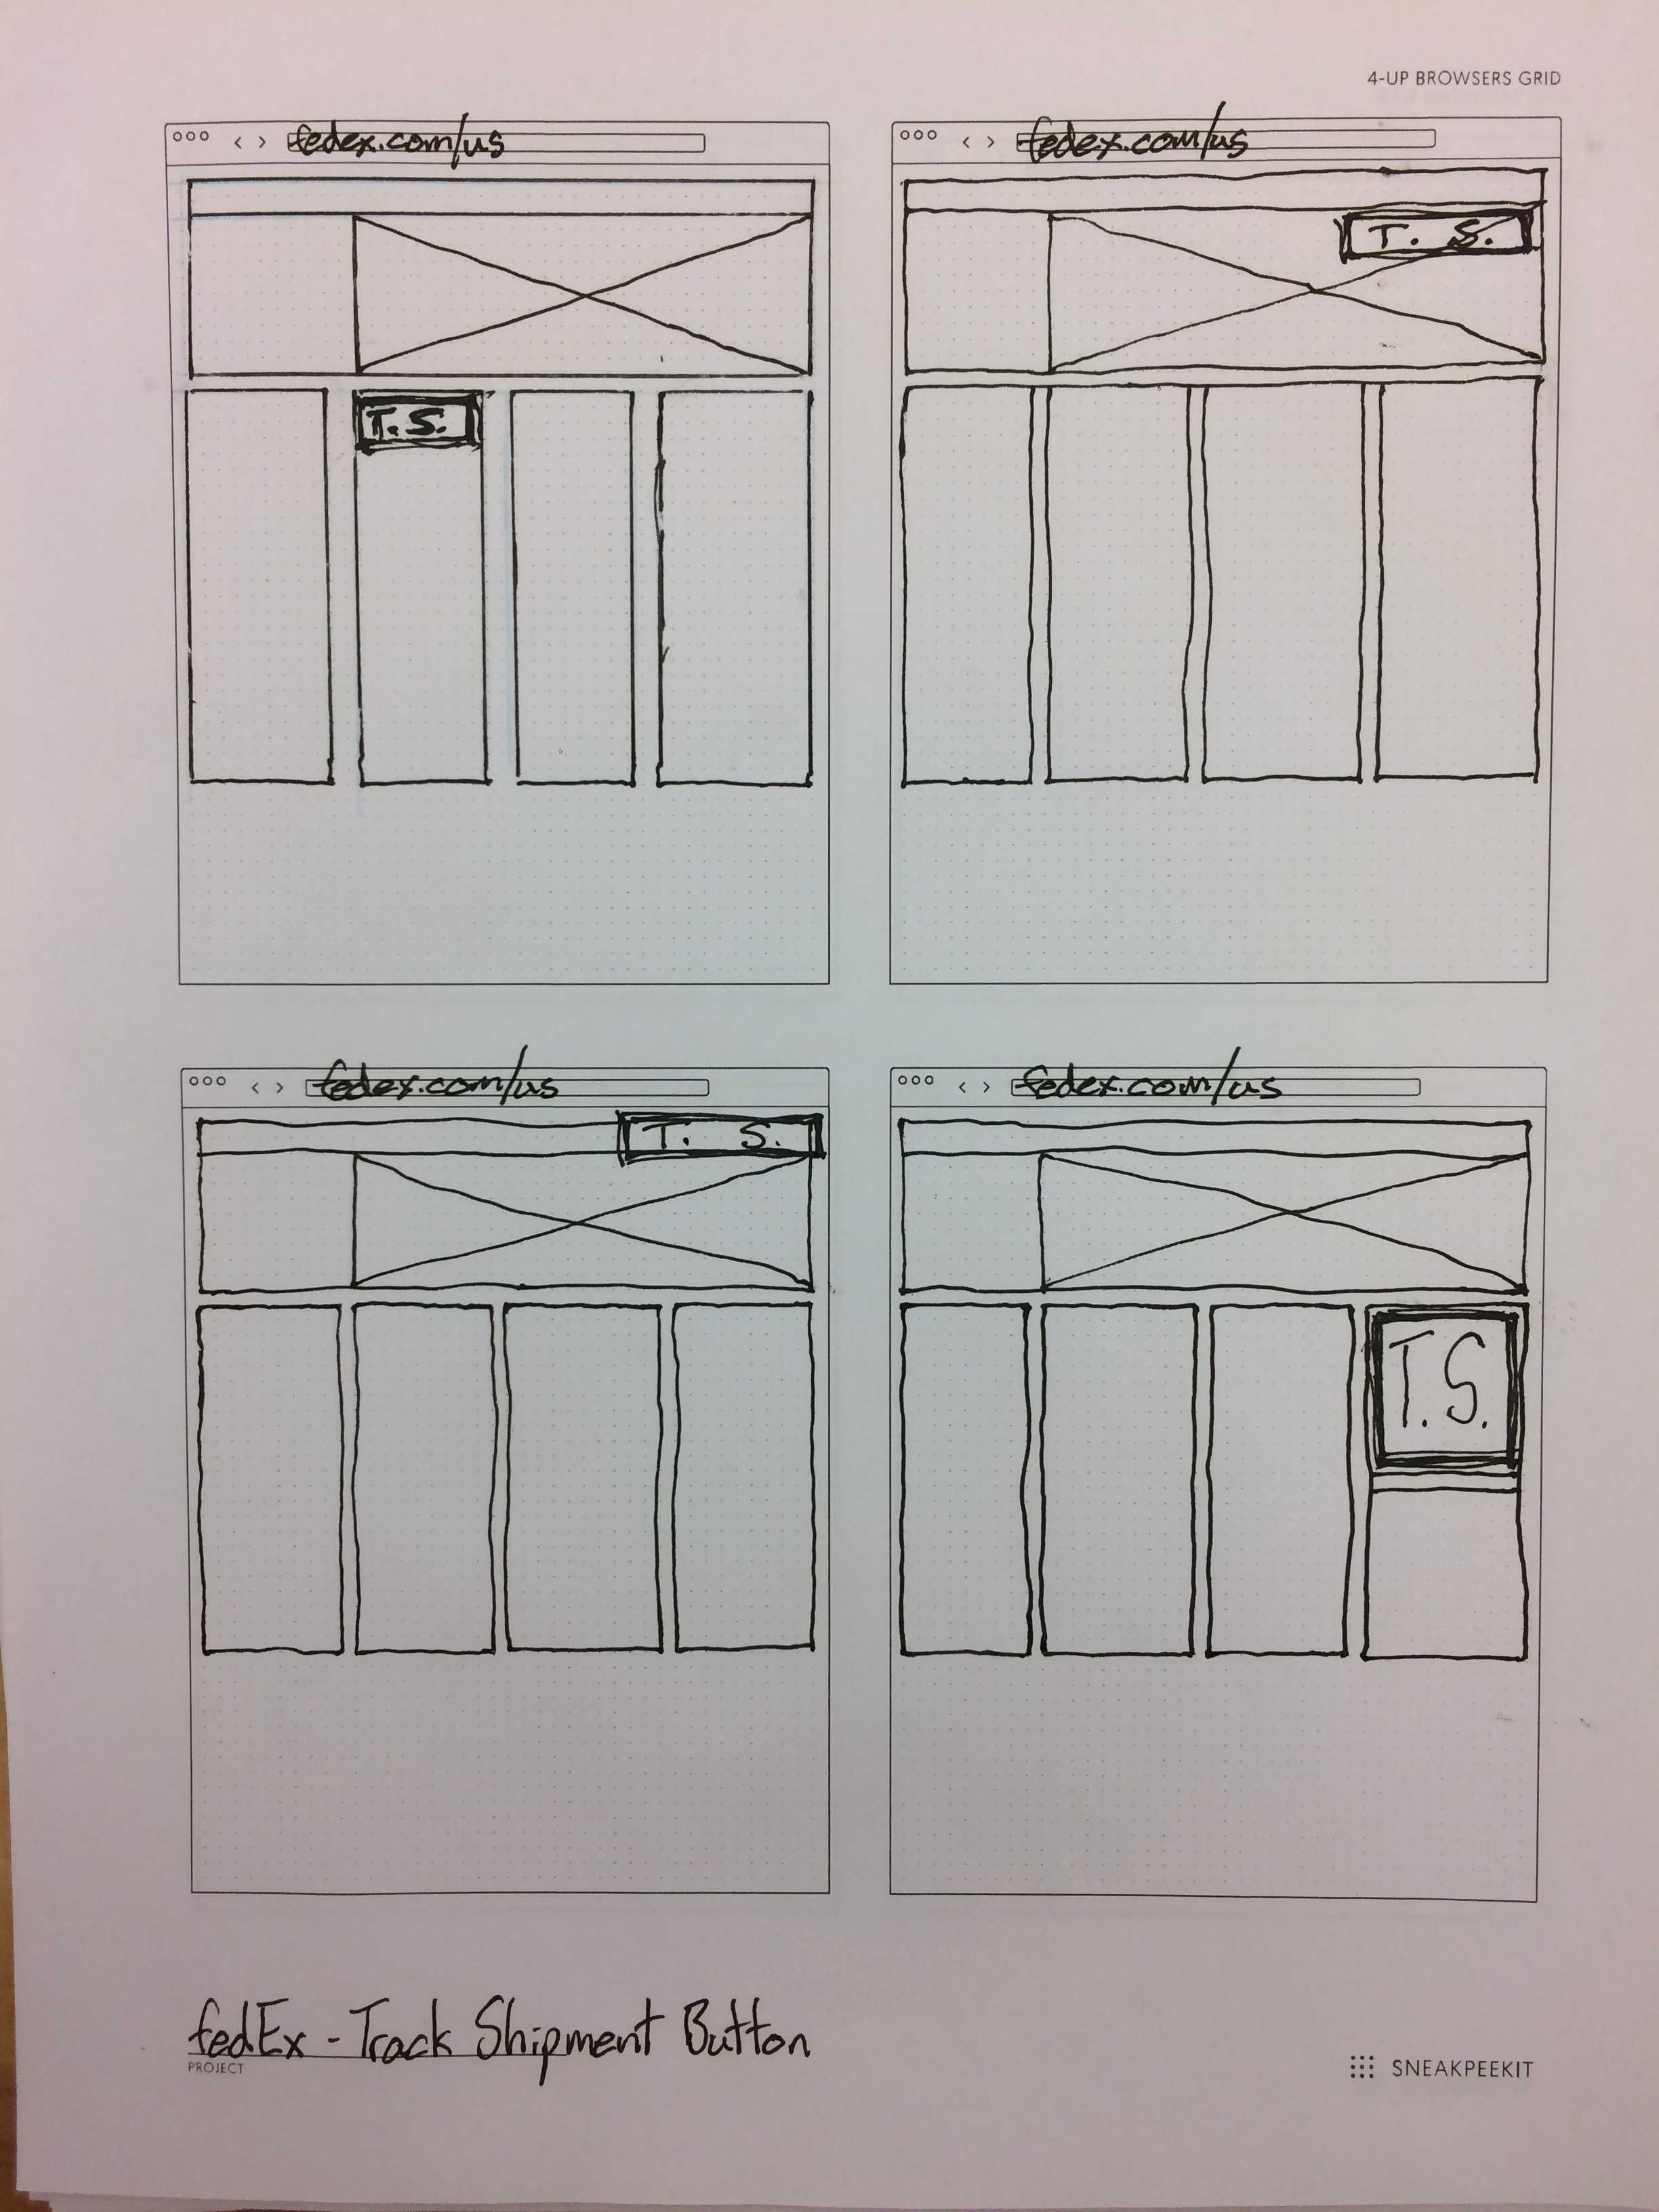 4-UP BROWSERS GRID
fedex.com/us
fedex.com/us
T. S.
T.S.
fedex.com/us
fedex.com/us
T. S.
T.S.
fedEx - Track Shipment Button
PROJECT
SNEAKPEEKIT